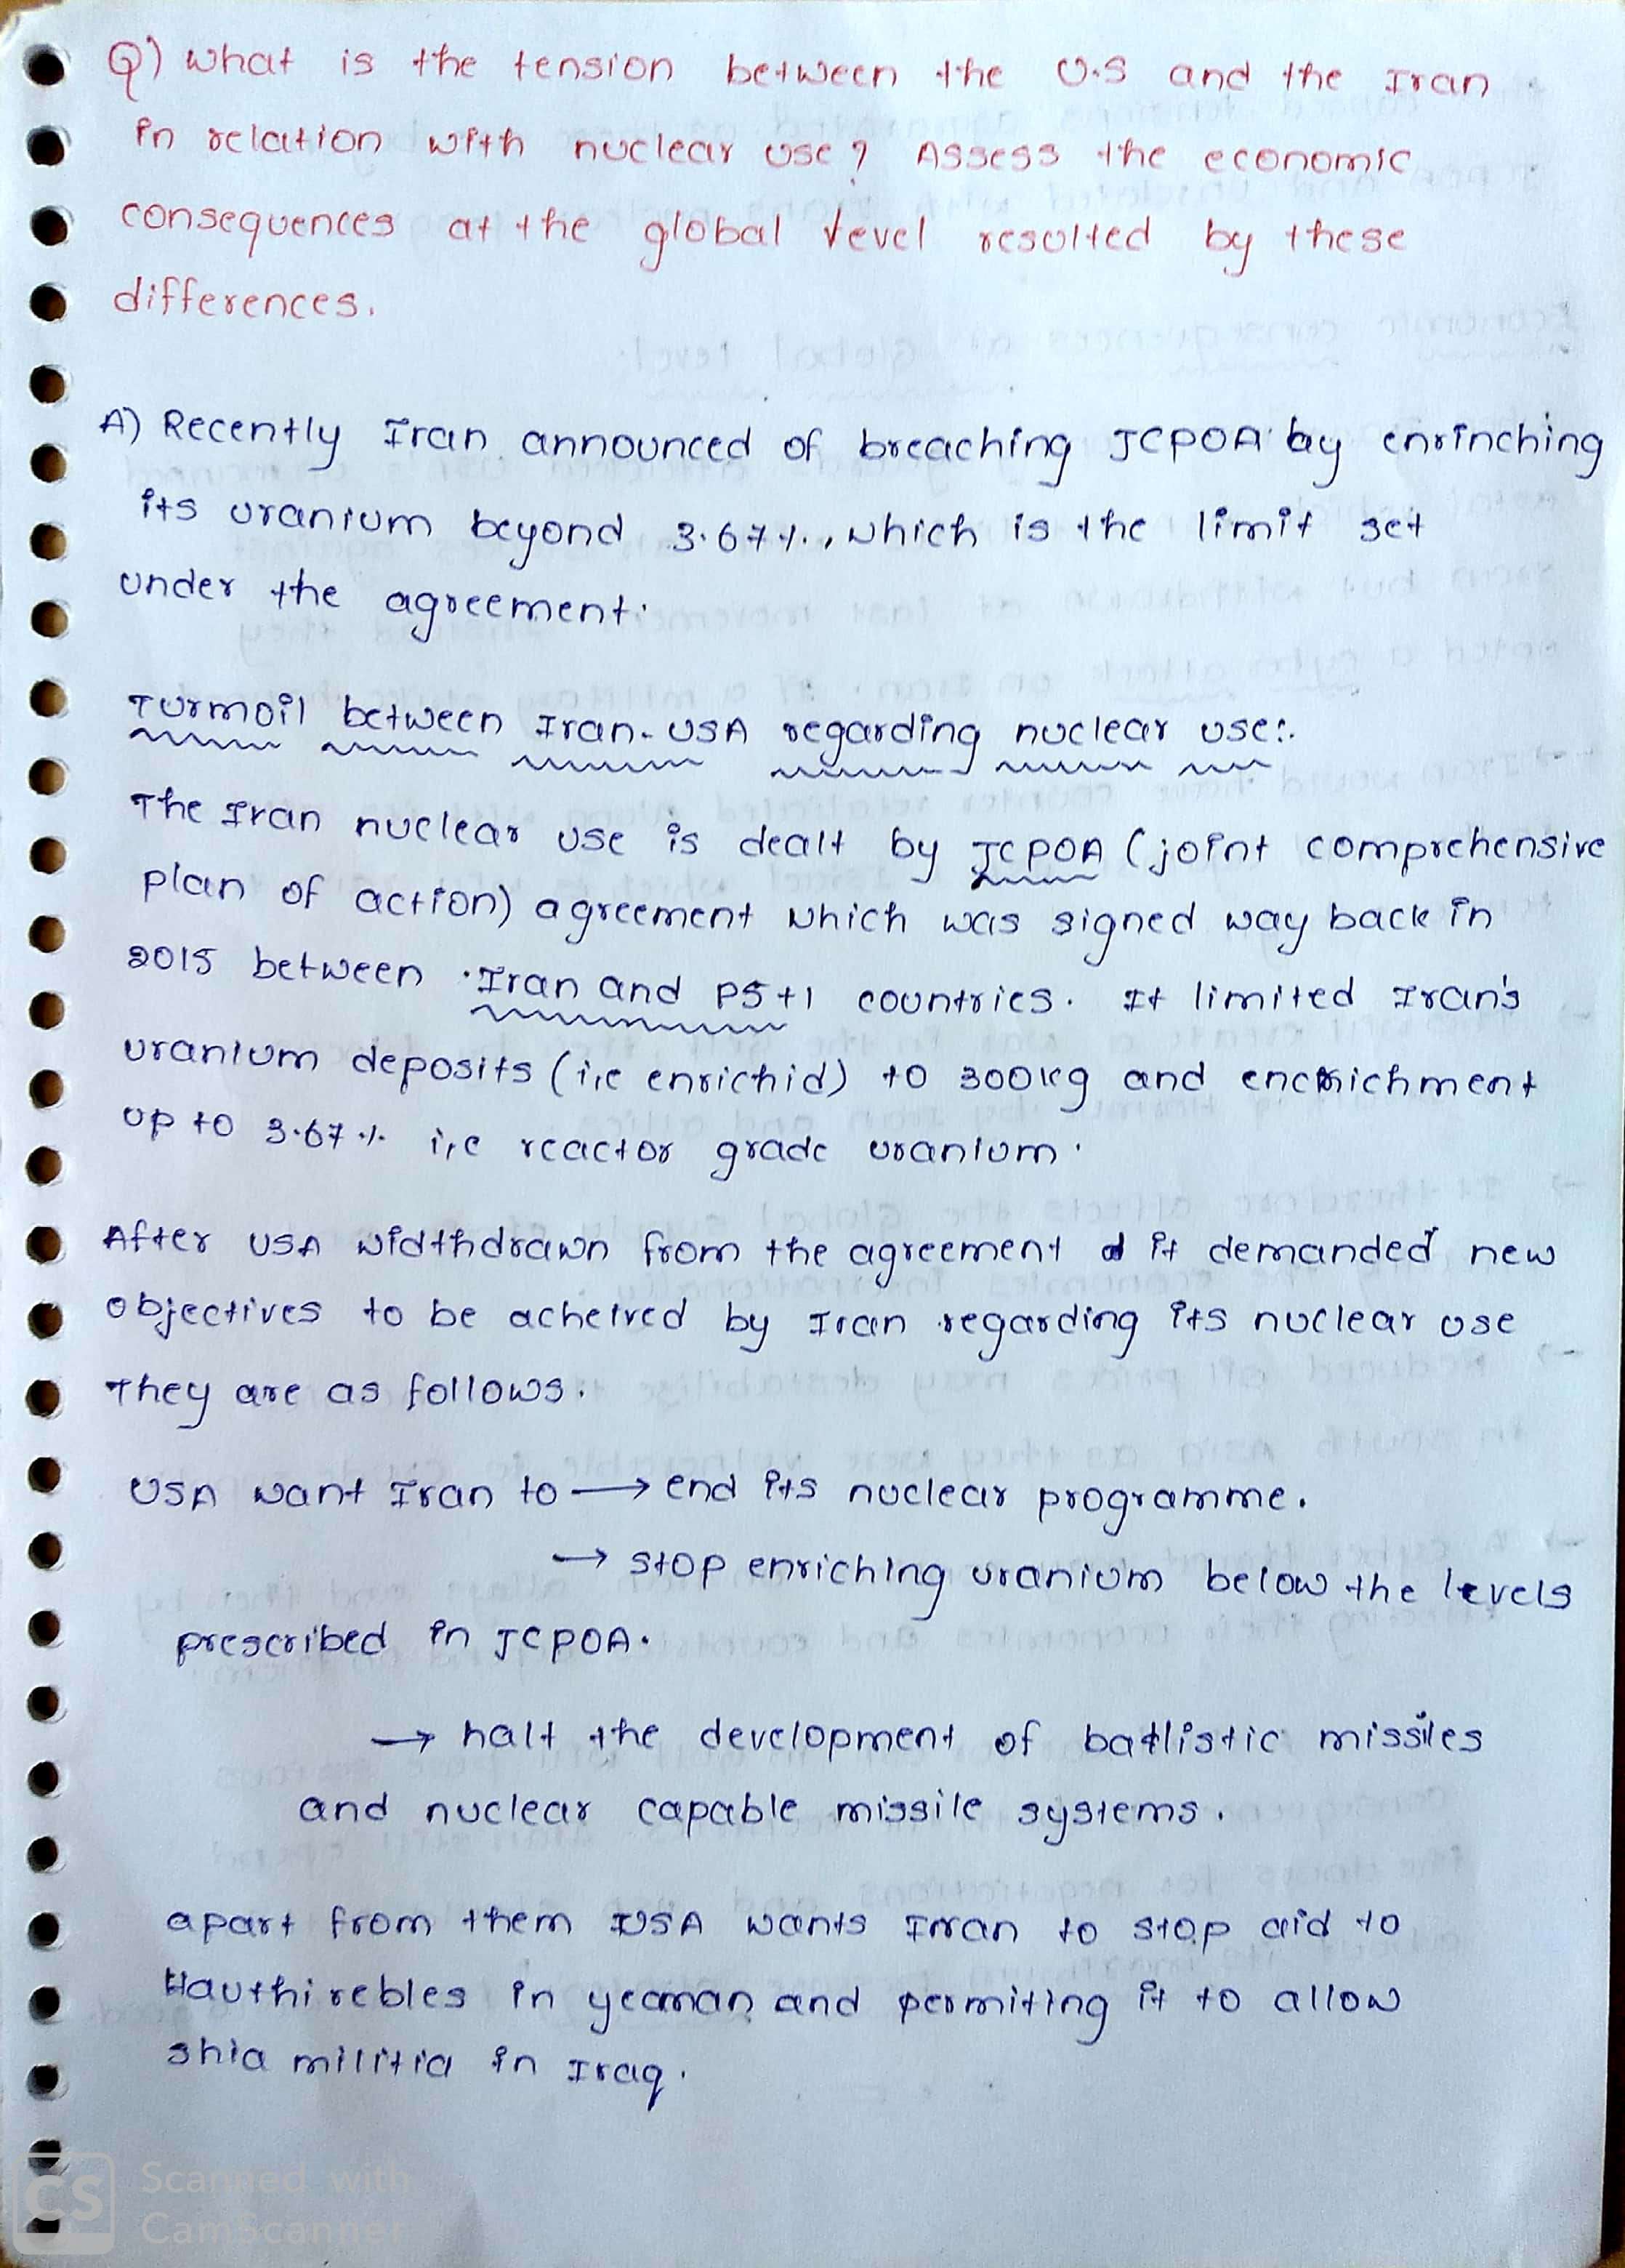 Q) What is the tension between the U.S and the Iran
in relation with nuclear use? Assess the economic
consequences at the global level resulted by these
differences.
A) Recently Iran announced of breaching JCPOA by enrinching
its uranium beyond 3.67%., which is the limit set
under the agreement.
Turmoil between Iran-USA regarding nuclear use:.
The Iran nuclear use is dealt by JCPOA (joint comprehensive
plan of action) agreement which was signed way back in
2015 between Iran and P5+1 countries. It limited Iran's
uranium deposits (i,e enrichid) to 300kg and encrichment
up to 3.67% i,e reactor grade uranium.
After USA widthdrawn from the agreement it demanded new
objectives to be acheived by Iran regarding its nuclear use
They are as follows.
USA want Iran to → end its nuclear programme.
→ stop enriching uranium below the levels
prescribed in JCPOA.
→ halt the development of ballistic missiles
and nuclear capable missile systems.
apart from them USA wants Iran to stop aid to
Hauthi rebles in yeaman and permiting it to allow
shia militia in Iraq.
CS Scanned with
CamScanner